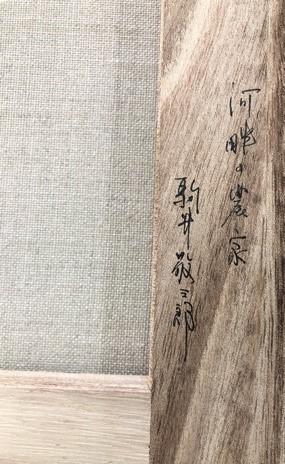 河畔の農家
駒井敬三郎